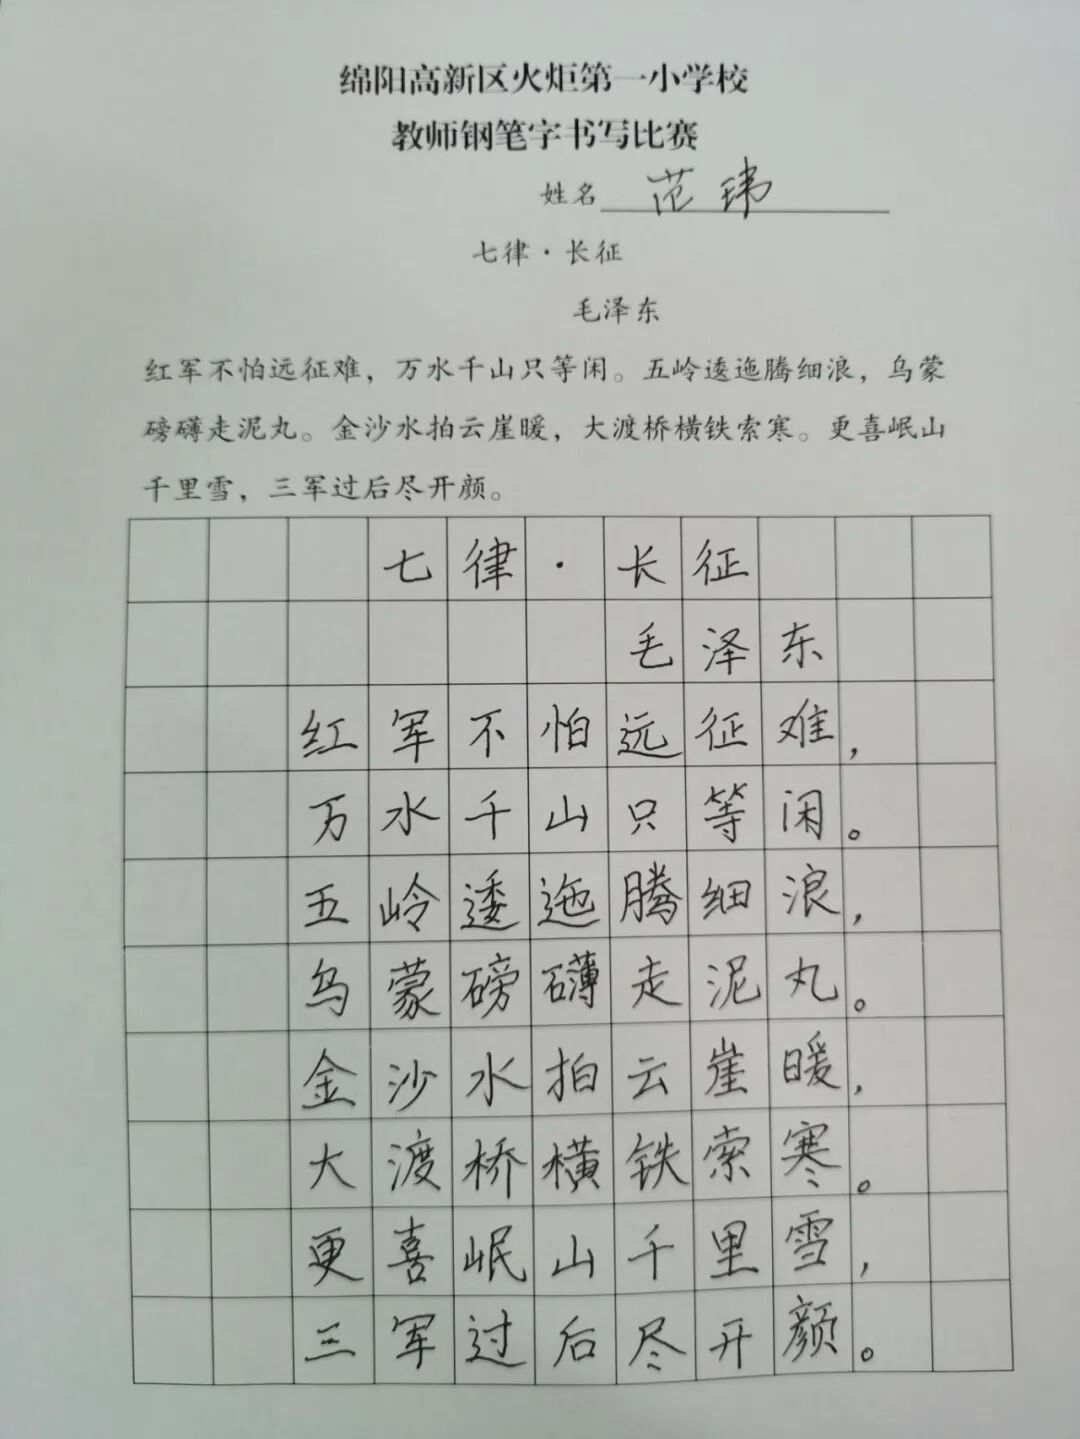 绵阳高新区火炬第一小学校
教师钢笔字书写比赛
姓名 范玮
七律·长征
毛泽东
红军不怕远征难，万水千山只等闲。五岭逶迤腾细浪，乌蒙
磅礴走泥丸。金沙水拍云崖暖，大渡桥横铁索寒。更喜岷山
千里雪，三军过后尽开颜。
七律·长征
毛泽东
红军不怕远征难，
万水千山只等闲。
五岭逶迤腾细浪，
乌蒙磅礴走泥丸。
金沙水拍云崖暖，
大渡桥横铁索寒。
更喜岷山千里雪，
三军过后尽开颜。